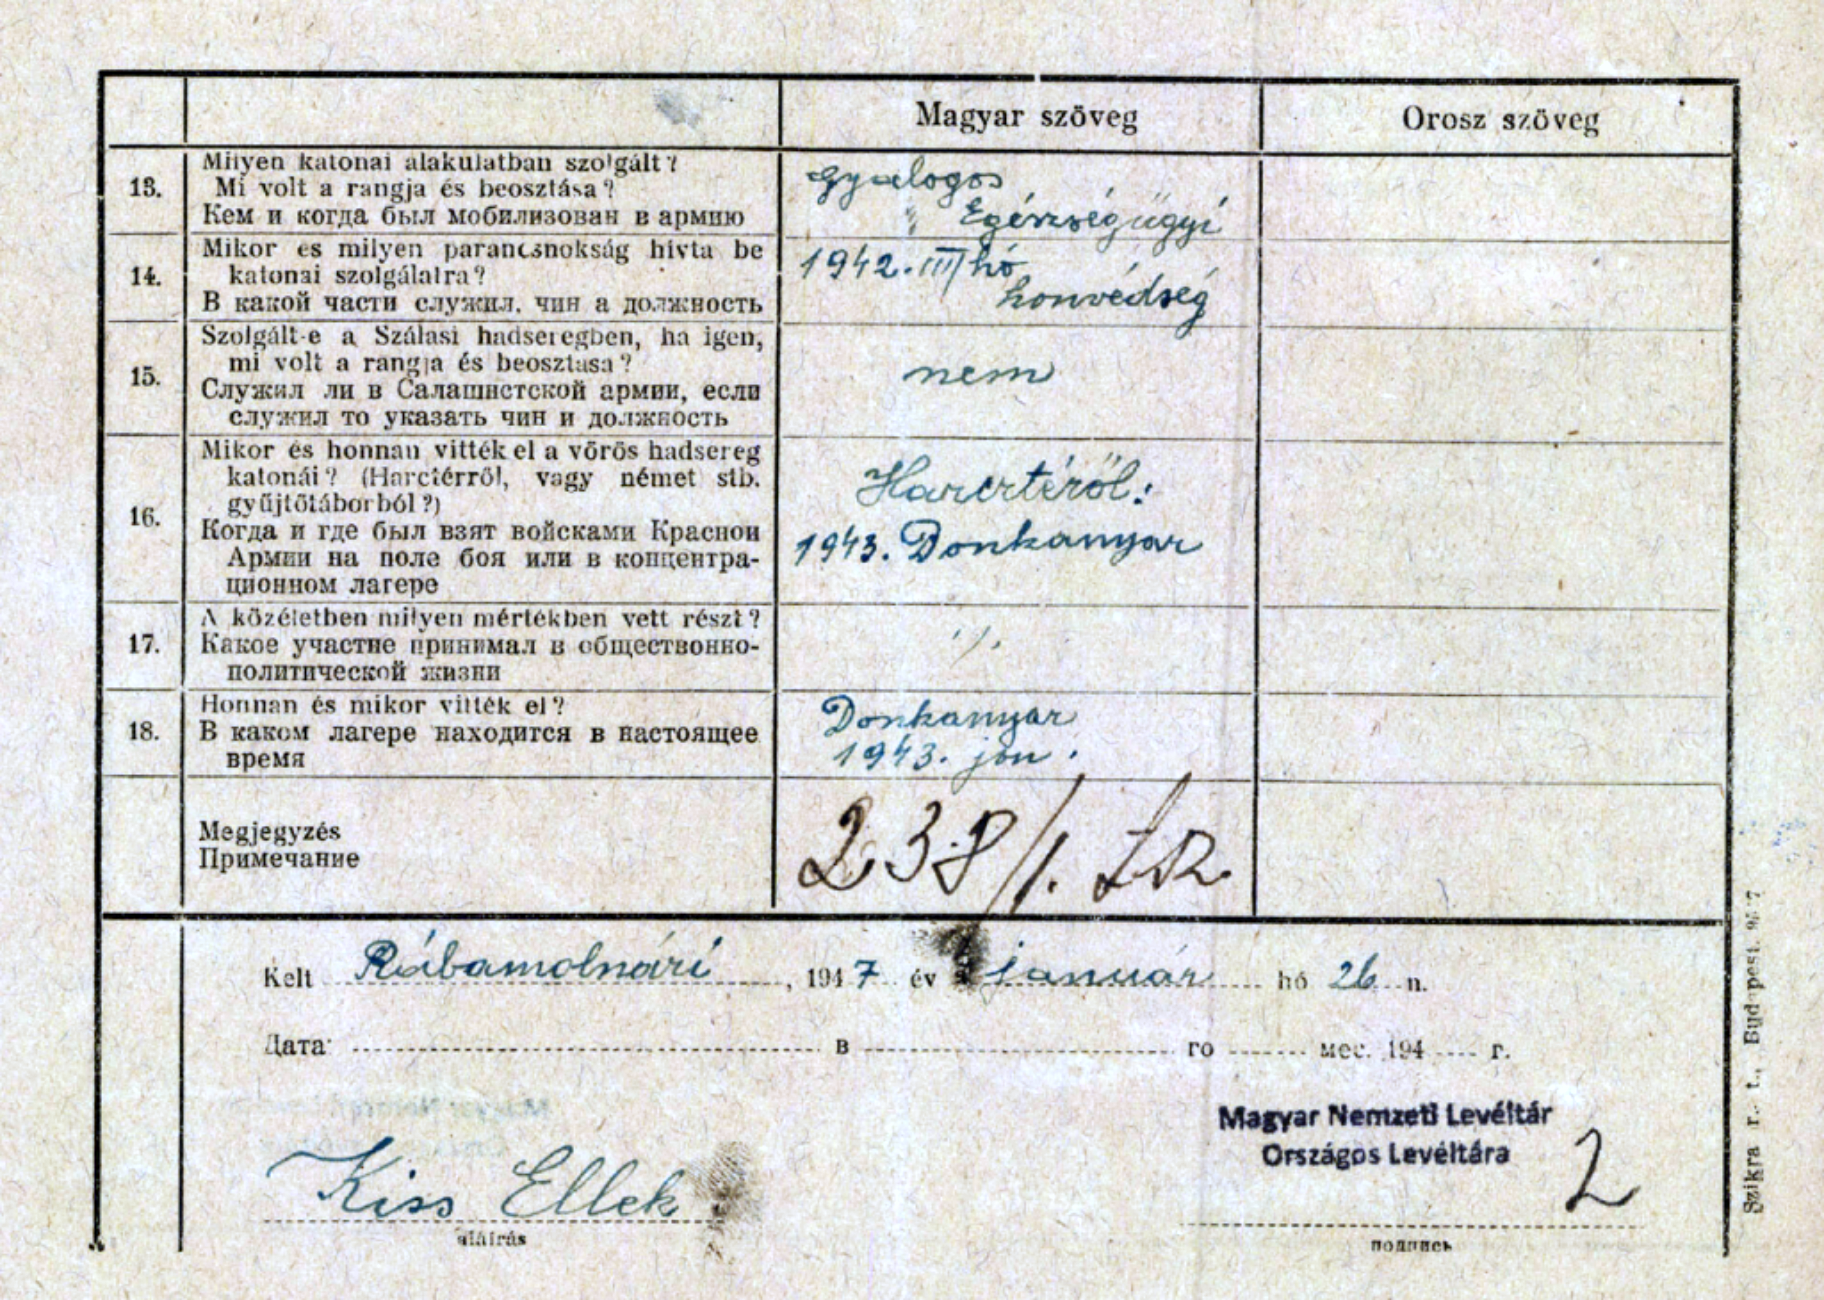 Magyar szöveg
Orosz szöveg
13.
Milyen katonai alakulatban szolgált?
Mi volt a rangja és beosztása?
Кем и когда был мобилизован в армию
gyalogos
" Egészségügyi
14.
Mikor es milyen parancsnokság hívta be
katonai szolgálatra?
В какой части служил, чин а должность
1942. III hó
honvédség
15.
Szolgált-e a Szálasi hadseregben, ha igen,
mi volt a rangja és beosztása?
Служил ли в Салашистской армии, если
служил то указать чин и должность
nem
16.
Mikor és honnan vitték el a vörös hadsereg
katonái? (Harctérről, vagy német stb.
gyűjtőtáborból?)
Когда и где был взят войсками Красной
Армии на поле боя или в концентра-
ционном лагере
Harcztéröl:
1943. Donkanyar
17.
A közéletben milyen mértékben vett részt?
Какое участие принимал в общественно-
политической жизни
./.
18.
Honnan és mikor vitték el?
В каком лагере находится в настоящее
время
Donkanyar
1943. jan.
Megjegyzés
Примечание
238/1.
Kelt Rábamolnári, 1947 év január hó 26 n.
Дата в го мес. 194 г.
Magyar Nemzeti Levéltár
Országos Levéltára
2
Kiss Ellek
aláírás
подпись
Szikra r. t., Budapest